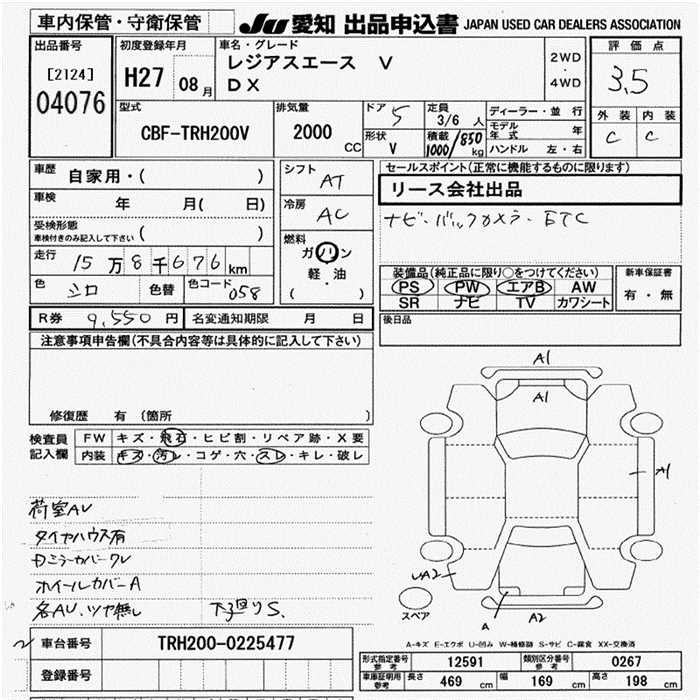 車内保管・守衛保管 JU 愛知 出品申込書 JAPAN USED CAR DEALERS ASSOCIATION
出品番号
[2124]
04076
初度登録年月
H27 08月
車名・グレード
レジアスエース V
DX
2WD
・
4WD
評価点
3,5
外装 内装
C C
型式
CBF-TRH200V
排気量
2000 CC
ドア 5
形状 V
定員
3/6 人
積載 1000/850 kg
ディーラー・並 行
モデル年式 年
ハンドル 左・右
車歴 自家用・( )
車検 年 月( 日)
受検形態
車検付きのみ記入して下さい ( )
走行 15万8千676km
色 シロ 色替 色コード 058
シフト AT
冷房 AC
燃料
ガソリン
軽・油
( )
セールスポイント(正常に機能するものに限ります)
リース会社出品
ナビ・バックカメラ・ETC
装備品(純正品に限り○をつけてください)
PS PW エアB AW
SR ナビ TV カワシート
新車保証書
有・無
後日品
R券 9,550円 名変通知期限 月 日
注意事項申告欄(不具合内容等は具体的に記入して下さい)
修復歴 有(箇所 )
検査員記入欄
FW キズ・飛石・ヒビ割・リペア跡・X要
内装 キズ・汚レ・コゲ・穴・スレ・キレ・破レ
荷室AU
タイヤハウス有
Dミラーカバーワレ
ホイールカバーA
各AU、ツヤ無し 下廻りS.
A1
A1
A1
UA2
スペア
A A2
A-キズ E-エクボ U-凹み W-補修跡 S-サビ C-腐食 XX-交換済
車台番号 TRH200-0225477
登録番号
形式指定番号参考 12591 類別区分番号参考 0267
車庫証明用参考 長さ 469 cm 幅 169 cm 高さ 198 cm